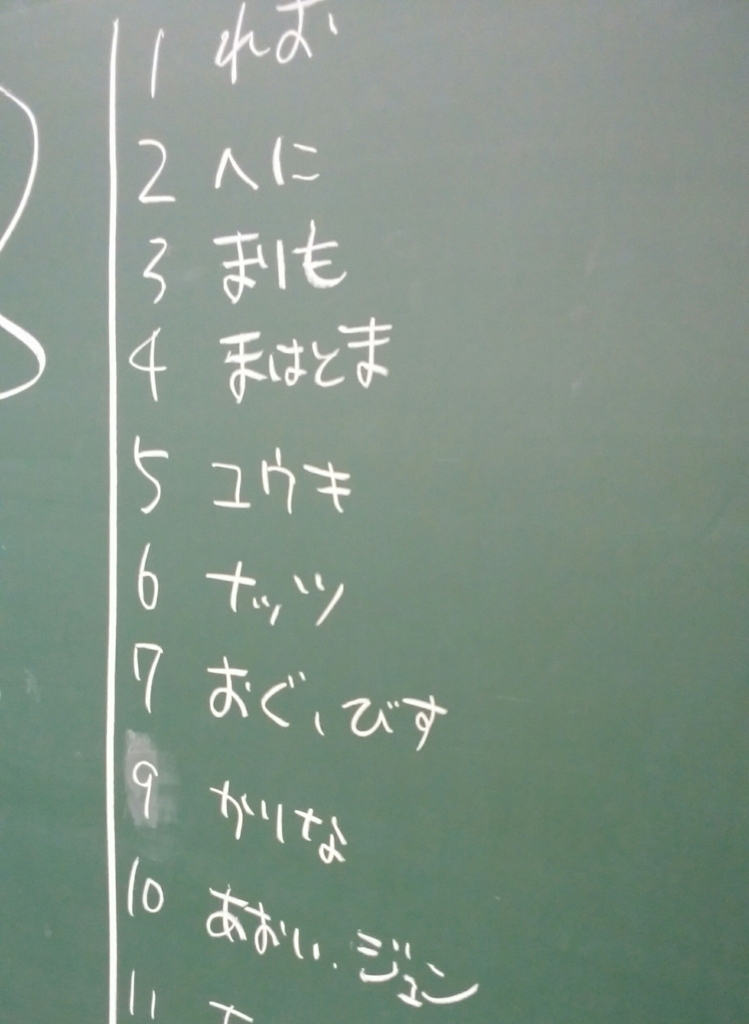 1 れお
2 へに
3 まりも
4 まはとま
5 ユウキ
6 ナッツ
7 おぐ、びす
9 かりな
10 あおい、ジュン
11